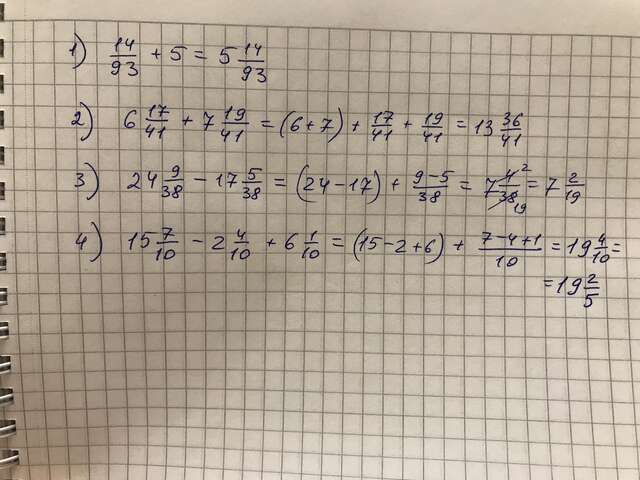 1) 14/93 + 5 = 5 14/93
2) 6 17/41 + 7 19/41 = (6+7) + 17/41 + 19/41 = 13 36/41
3) 24 9/38 − 17 5/38 = (24−17) + 9−5/38 = 7 4/38 2 19 = 7 2/19
4) 15 7/10 − 2 4/10 + 6 1/10 = (15−2+6) + 7−4+1/10 = 19 4/10 =
= 19 2/5